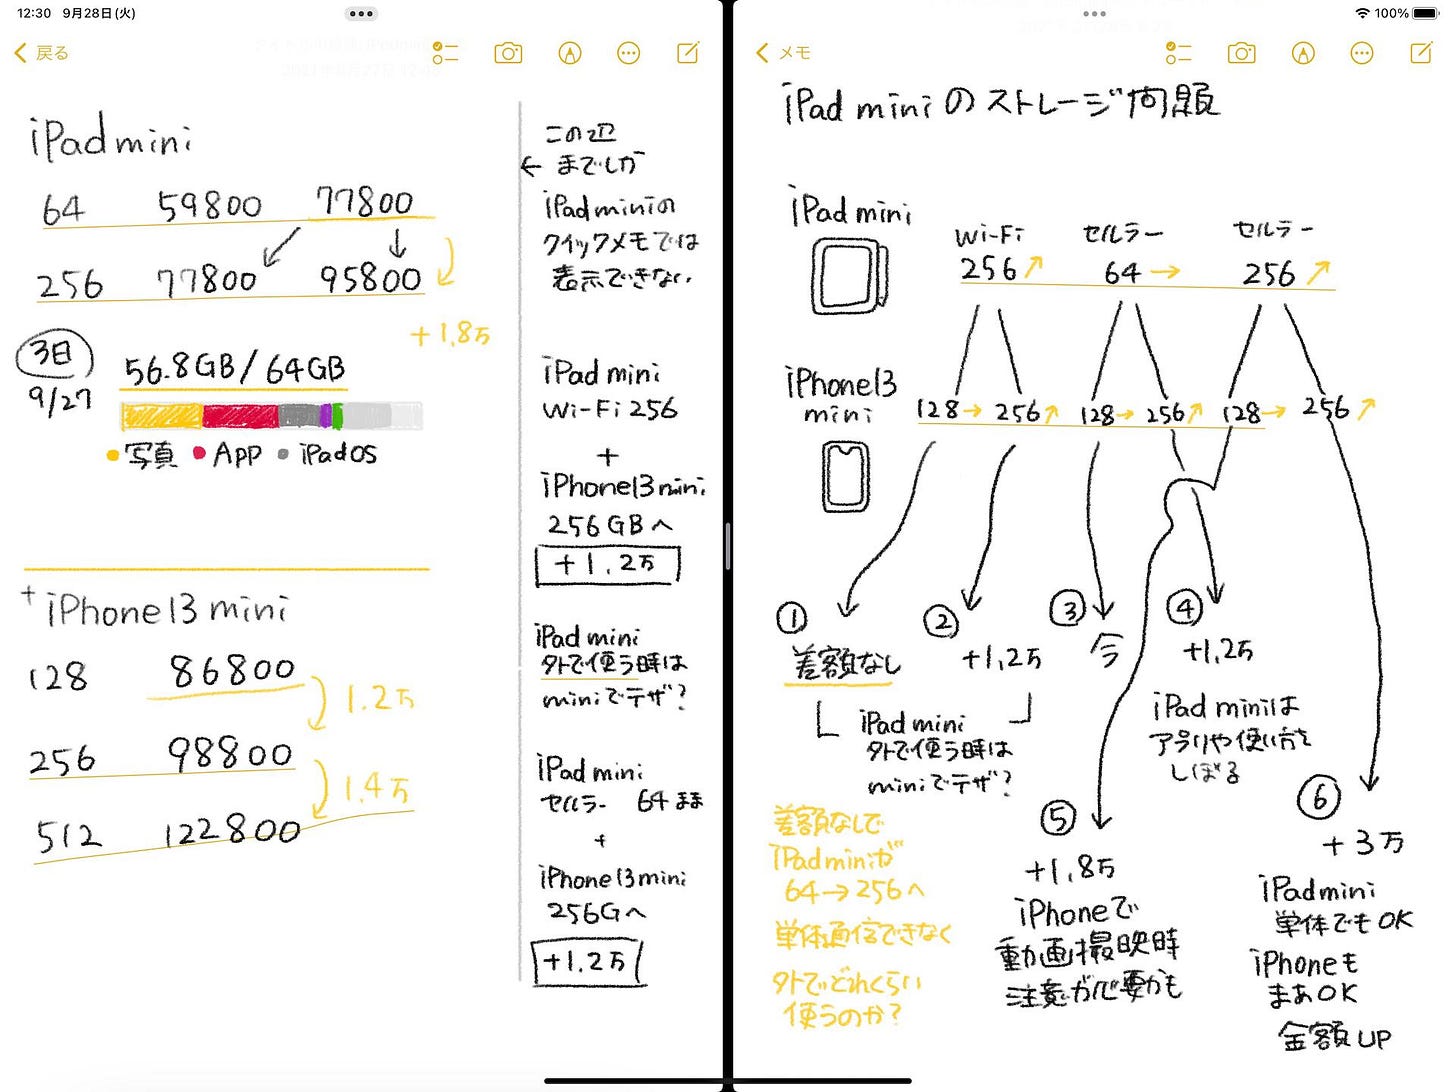 12:30 9月28日(火)
100%
戻る
iPad mini
64 59800 77800
256 77800 95800
+1.8万
3日
9/27
56.8GB/64GB
写真 App iPadOS
+iPhone13 mini
128 86800
1.2万
256 98800
1.4万
512 122800
この辺
← までしか
iPad miniの
クイックメモでは
表示できない
iPad mini
Wi-Fi 256
+
iPhone13mini
256GBへ
+1.2万
iPad mini
外で使う時は
miniでテザ?
iPad mini
セルラー 64まま
+
iPhone13mini
256Gへ
+1.2万
メモ
iPad miniのストレージ問題
iPad mini
Wi-Fi セルラー セルラー
256↗ 64→ 256↗
iPhone13
mini
128→ 256↗ 128→ 256↗ 128→ 256↗
① ② ③ ④
差額なし +1.2万 今 +1.2万
iPad mini
外で使う時は
miniでテザ?
iPad miniは
アプリや使い方を
しぼる
差額なしで
iPad miniが
64→256へ
単体通信できなく
外でどれくらい
使うのか?
⑤
+1.8万
iPhoneで
動画撮映時
注意が必要かも
⑥
+3万
iPadmini
単体でもOK
iPhoneも
まあOK
金額UP